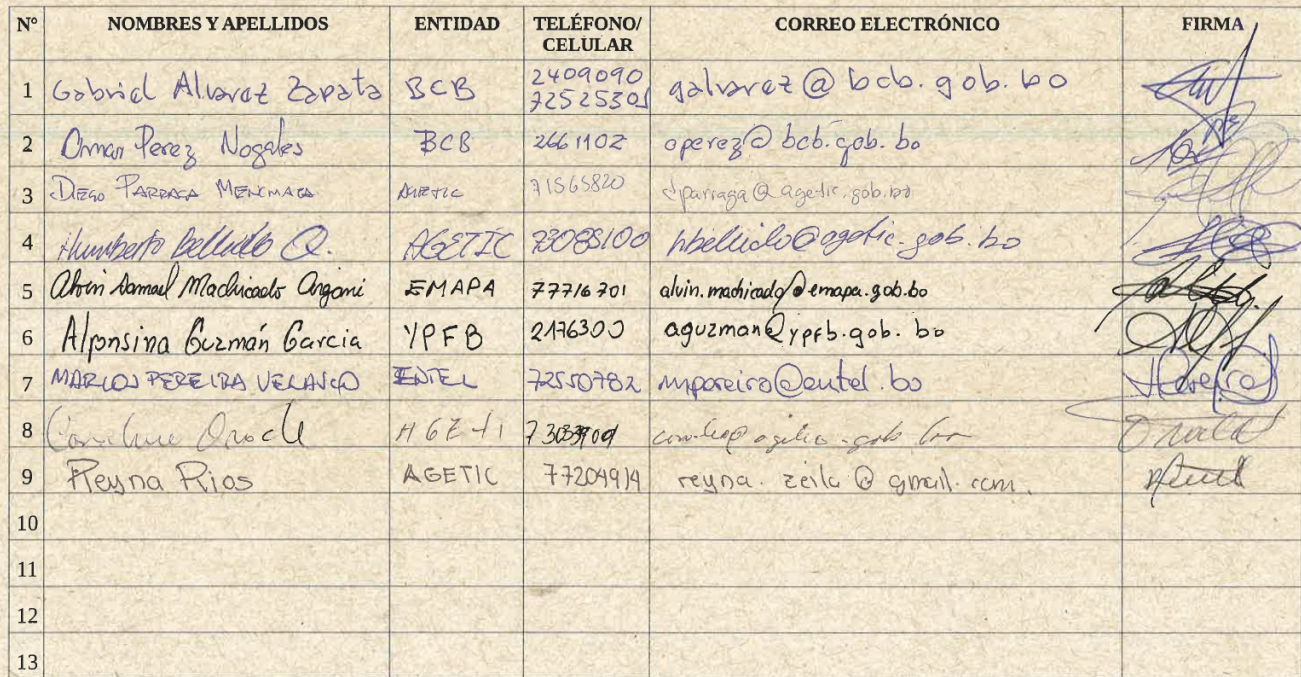 N° NOMBRES Y APELLIDOS ENTIDAD TELÉFONO/ CELULAR CORREO ELECTRÓNICO FIRMA
1 Gabriel Alvarez Zapata BCB 2409090 72525301 galvarez@bcb.gob.bo
2 Omar Perez Nogales BCB 2661102 operez@bcb.gob.bo
3 DIEGO PARRAGA AGETIC 71565820 dparraga@agetic.gob.bo
4 Humberto Bellido Q. AGETIC 73085100 hbellido@agetic.gob.bo
5 Machicado EMAPA 77716701 alvin.machicado@emapa.gob.bo
6 Alfonsina Guzmán Garcia YPFB 2176300 aguzman@ypfb.gob.bo
7 MARCOS PEREIRA VELASCO ENTEL 72550782 mpereira@entel.bo
8
9 Reyna Rios AGETIC 77204914 reyna.zeila@gmail.com.
10
11
12
13